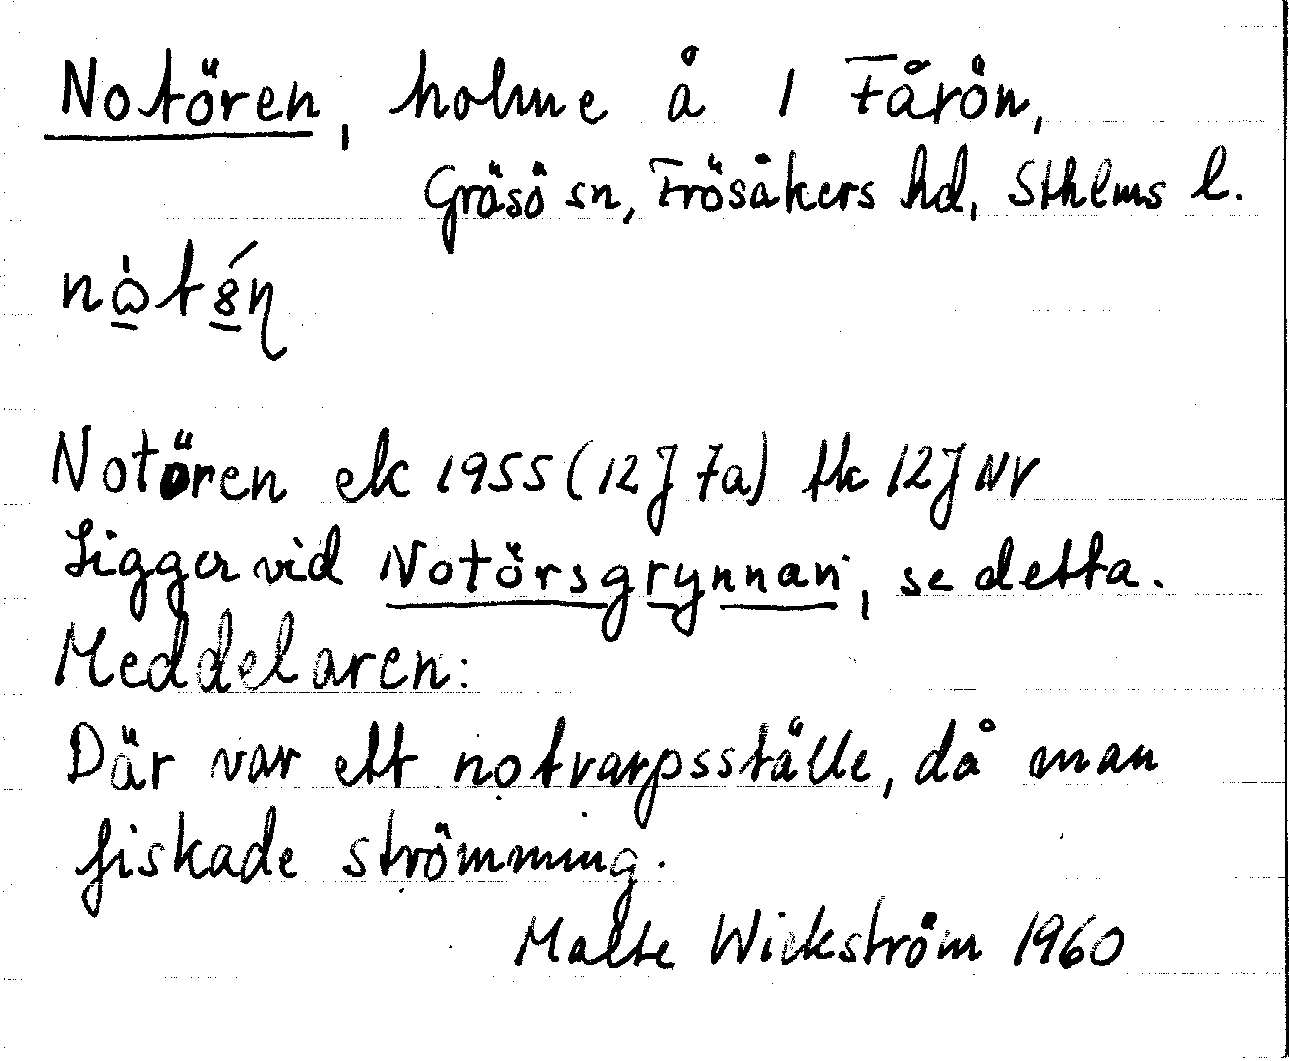 Notören, holme å 1 Fårön,
Gräsö sn, Frösåkers hd, Sthlms l.
Notören ek 1955 (12J 7a) tk 12J NV
Ligger vid Notörsgrynnan, se detta.
Meddelaren:
Där var ett notvarpsställe, då man
fiskade strömming.
Malte Wickström 1960